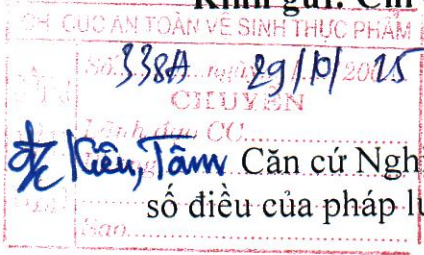 Kính gửi: Chi
CHI CỤC AN TOÀN VỆ SINH THỰC PHẨM
Số: 338A ngày 29/10/2025
CHUYỂN
Lãnh đạo CC
đ/c Kiên, Tâm Căn cứ Ngh
số điều của pháp lu
Sao